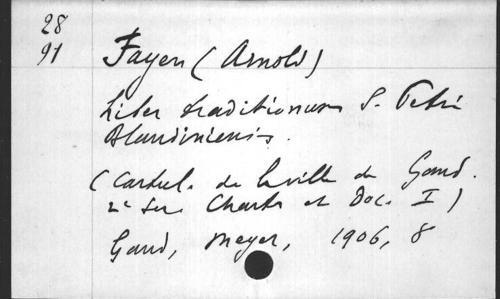 28
91
Fayen (Arnold)
Liber traditionum S. Petri
Blandiniensis.
(Cartul. de la ville de Gand.
2e Ser. Chartes et Doc. I)
Gand, Meyer, 1906, 8